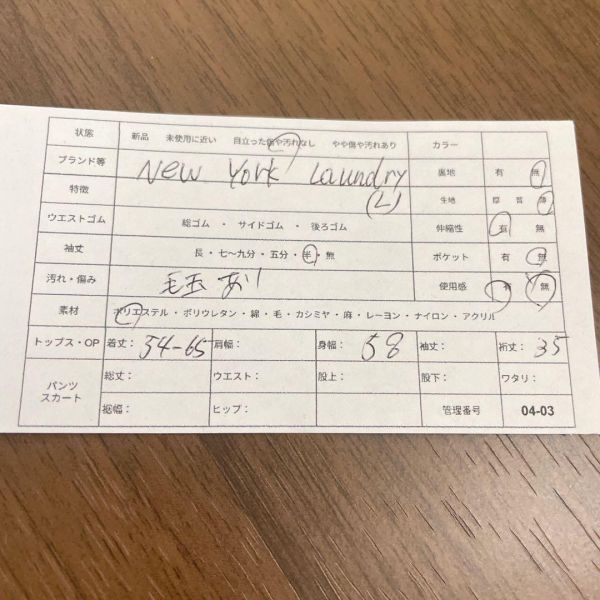 状態 新品 未使用に近い 目立った傷や汚れなし やや傷や汚れあり カラー
ブランド等 New York Laundry 裏地 有 無
特徴 (L) 生地 厚 普 薄
ウエストゴム 総ゴム ・ サイドゴム ・ 後ろゴム 伸縮性 有 無
袖丈 長・七〜九分・五分・半・無 ポケット 有 無
汚れ・傷み 毛玉あり 使用感 有 無
素材 ポリエステル・ポリウレタン・綿・毛・カシミヤ・麻・レーヨン・ナイロン・アクリル
トップス・OP 着丈: 54-65 肩幅: 身幅: 58 袖丈: 裄丈: 35
パンツ スカート 総丈: ウエスト: 股上: 股下: ワタリ:
裾幅: ヒップ: 管理番号 04-03